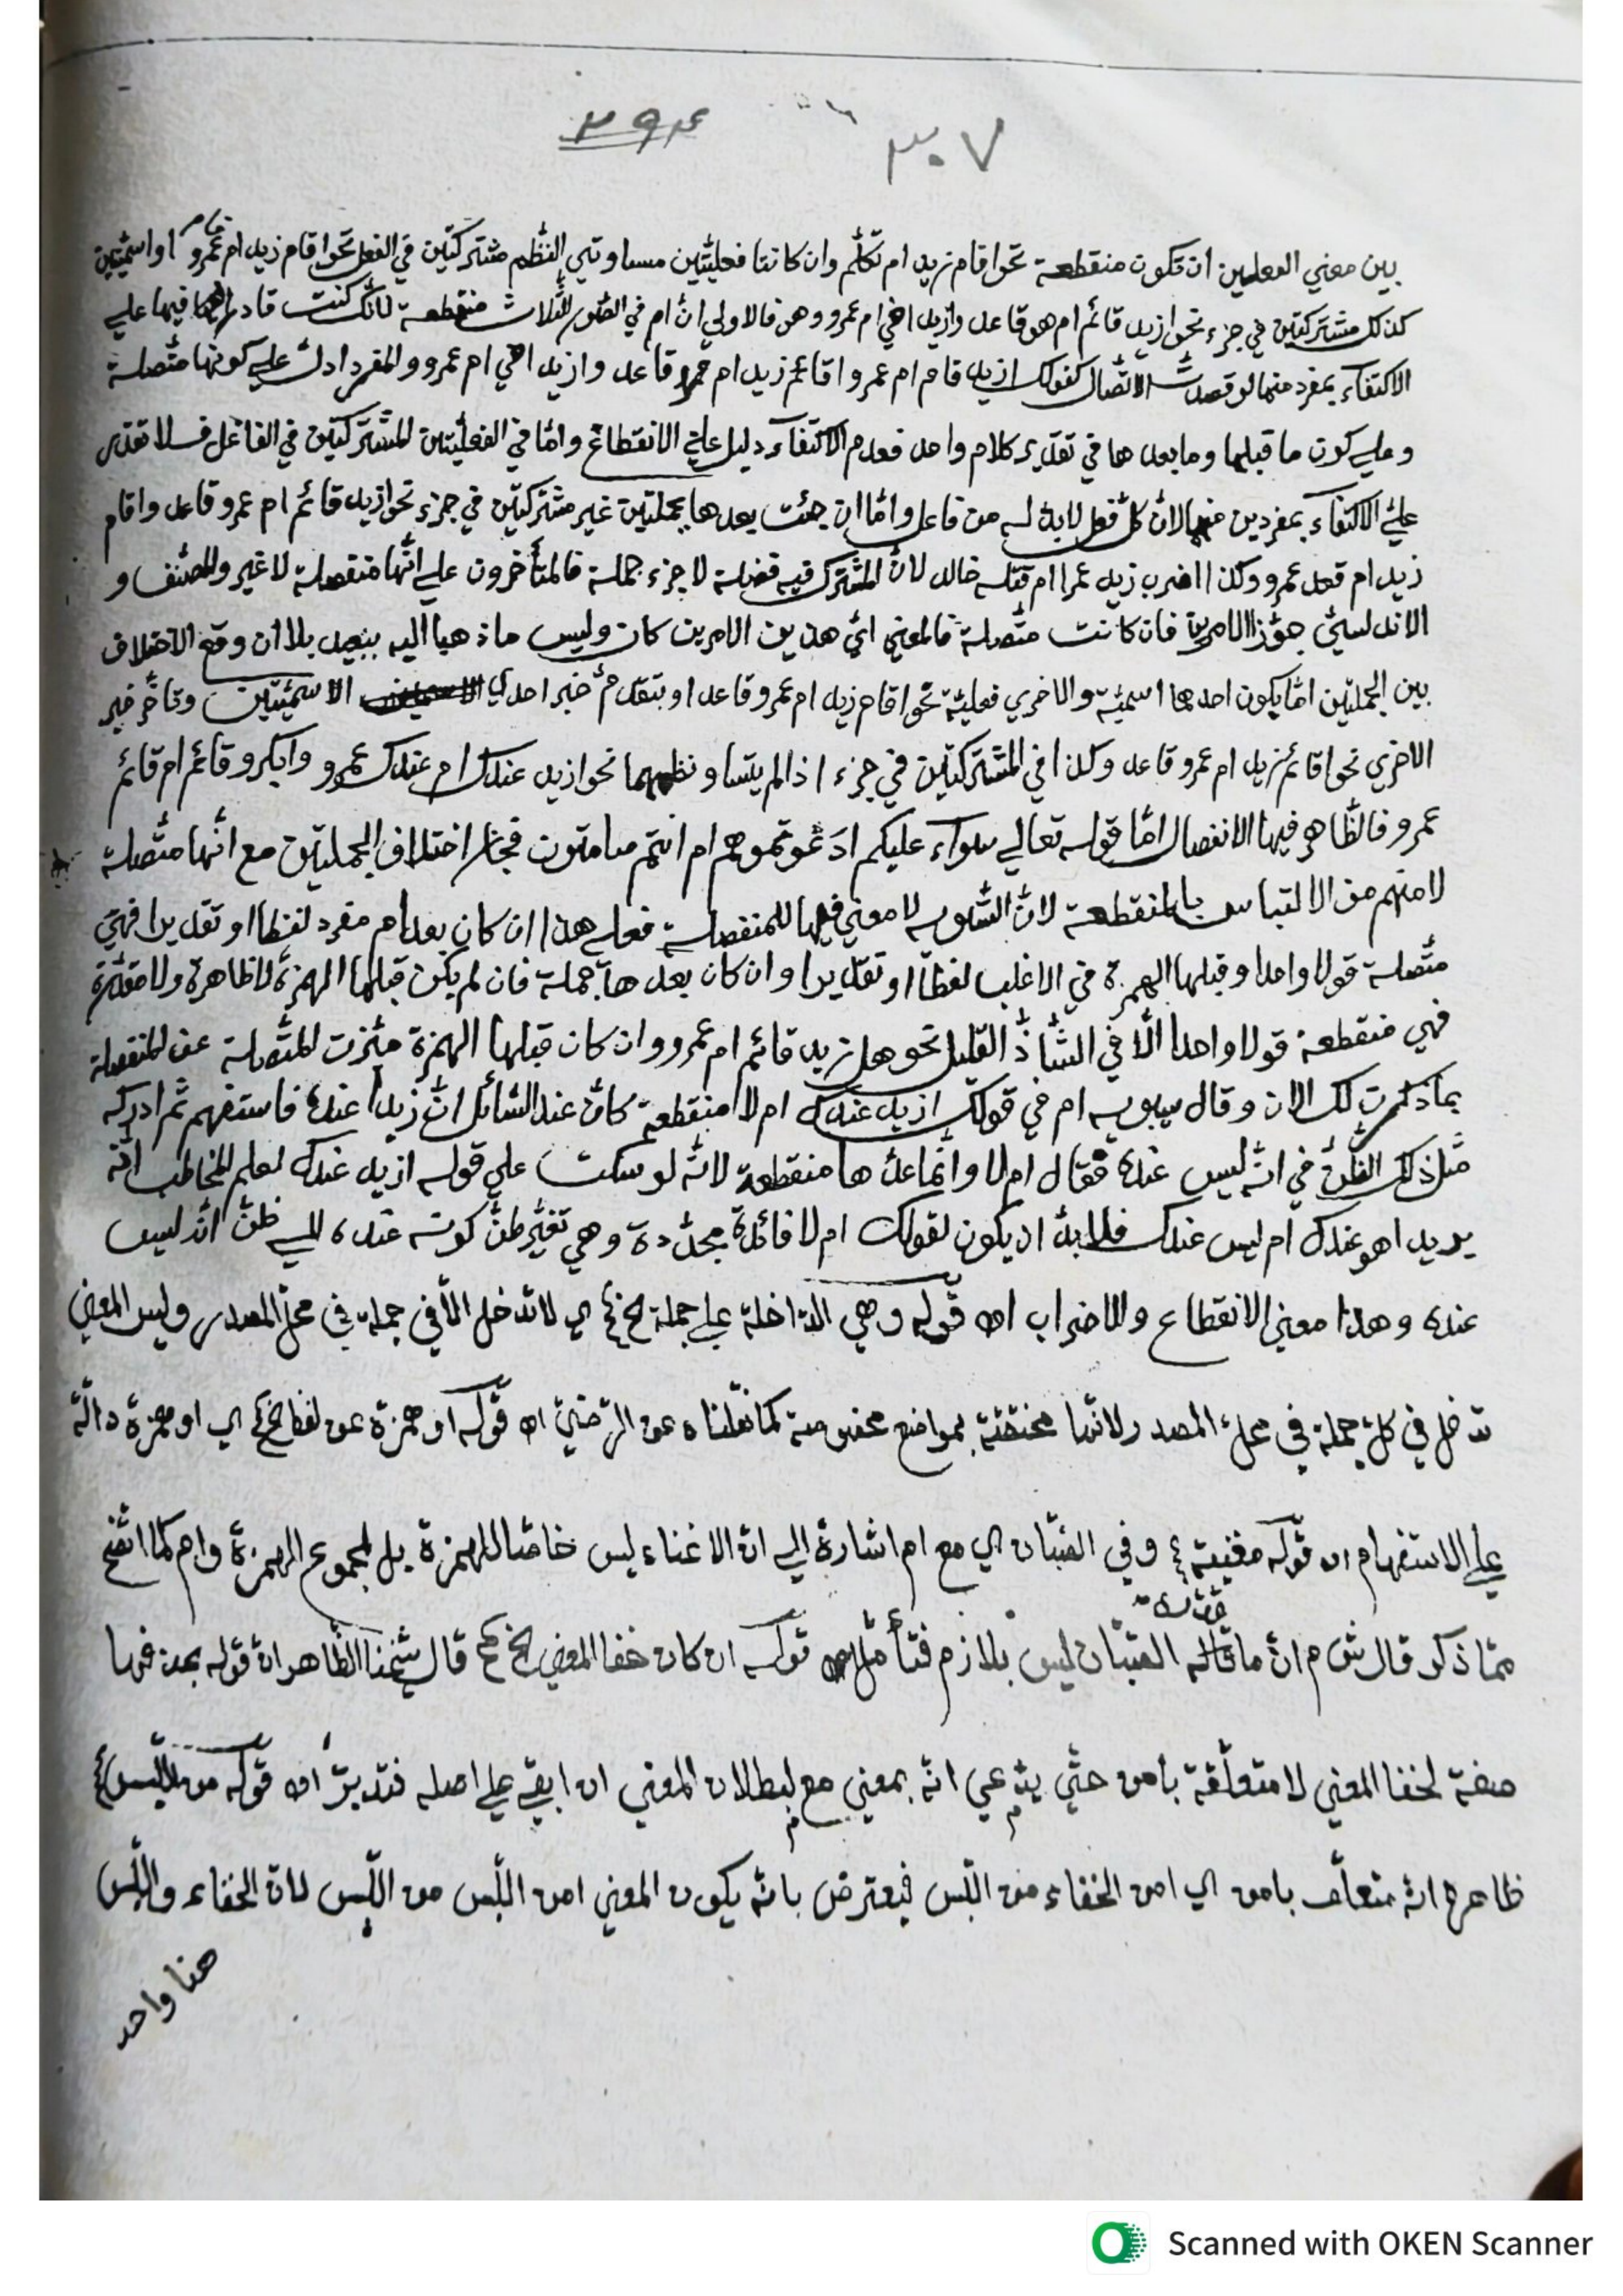 ٣٩٤ ٣٠٧
بين معني الفعلين ان تكون منقطعة نحو اقام زيد ام تكلّم وان كانتا فعليّتين مساوتي النّظم مشتركتين في الفعل نحو اقام زيد ام قام عمرو او اسميّتين
كذلك مشتركتين في جزء نحو ازيد قائم ام هو قاعد وازيد اخي ام عمرو وهو فالاولي انّ ام في الصّور الثّلاث منقطعة لانّك كنت قادرا فيها علي
الاكتفاء بمفرد منهما لو قصدت الاتّصال كقولك ازيد قام ام عمرو اقائم زيد ام قاعد وازيد اخي ام عمرو والمفرد ادلّ علي كونها متّصلة
وعلي كون ما قبلها وما بعدها في تقدير كلام واحد فعدم الاكتفاء دليل علي الانقطاع وامّا في الفعليّتين المشتركتين في الفاعل فلا تقدر
علي الاكتفاء بمفردين منهما لانّ كلّ فعل لابدّ له من فاعل وامّا ان جئت بعدها بجملتين غير مشتركتين في جزء نحو ازيد قائم ام عمرو قاعد واقام
زيد ام قعد عمرو وكذا اضرب زيد عمرا ام قتله خالد لانّ المشترك فيه فضلة لا جزء جملة فالمتأخّرون علي انّها منفصلة لا غير والمصنّف و
الاندلسيّ جوّزا الامرين فان كانت متّصلة فالمعني ايّ هذين الامرين كان وليس ما ذهبا اليه ببعيد بلا ان وقع الاختلاف
بين الجملتين امّا بكون احدهما اسميّة والاخري فعليّة نحو اقام زيد ام عمرو قاعد او بتقدّم خبر احدي الاسميّتين وتاخّر خبر
الاخري نحو اقائم زيد ام عمرو قاعد وكذا في المشتركتين في جزء اذا لم يتساو نظمهما نحو ازيد عندك ام عندك عمرو وابكرو قائم ام قائم
عمرو فالظّاهر فيها الانفصال امّا قوله تعالي سواء عليكم ادعوتموهم ام انتم صامتون فجاز اختلاف الجملتين مع انّها متّصلة
لامنهم من الالتباس بالمنقطعة لانّ التّسوية لا معني فيها للمنفصلة فعلي هذا ان كان بعد ام مفرد لفظا او تقديرا فهي
متّصلة قولا واحدا وقبلها الهمزة في الاغلب لفظا او تقديرا وان كان بعدها جملة فان لم يكن قبلها الهمزة لا ظاهرة ولا مقدّرة
فهي منقطعة قولا واحدا الّا في الشّاذّ القليل نحو هل زيد قائم ام عمرو وان كان قبلها الهمزة ميّزت المتّصلة عن المنفصلة
بما ذكرت لك الان وقال سيبويه ام في قولك ازيد عندك ام لا منقطعة كان عند السّائل انّ زيدا عنده فاستفهم ثمّ ادركه
مثل ذلك الظّنّ في انّه ليس عنده فقال ام لا وانّما عدّها منقطعة لانّه لو سكت علي قوله ازيد عندك لعلم المخاطب انّه
يريد اهو عندك ام ليس عندك فلا بدّ ان يكون لقولك ام لا فائدة مجدّدة وهي تغيّر ظنّ كونه عنده الي ظنّ انّه ليس
عنده وهذا معني الانقطاع والاضراب اه قوله وهي الدّاخلة علي جملة الخ اي لا تدخل الّا في جملة في محلّ المصدر وليس المعني
تدخل في كلّ جملة في محلّ المصدر لانّها مختصّة بمواضع مخصوصة كما نقلناه عن الرّضيّ اه قوله او همزة عن لفظ الخ اي او همزة دالّة
علي الاستفهام اه قوله مغنية وفي الصّبّان اي مع ام اشارة الي انّ الاغناء ليس خاصّا للهمزة بل لمجموع الهمزة وام كما اتّضح
ممّا ذكر قال ش م انّ ما قاله الصّبّان ليس بلازم فتأمّل اه قوله ان كان خفا المعني الخ قال شيخنا الظّاهر انّ قوله بحذفها
صفة لخفا المعني لا متعلّقة بأمن حتّي يدّعي انّه بمعني مع لبطلان المعني ان ابقي علي اصله فتدبّر اه قوله من اللّبس
ظاهره انّه متعلّق بامن اي امن الخفاء من اللّبس فيعترض بانّه يكون المعني امن اللّبس من اللّبس لانّ الخفاء واللّبس
هنا واحد
Scanned with OKEN Scanner